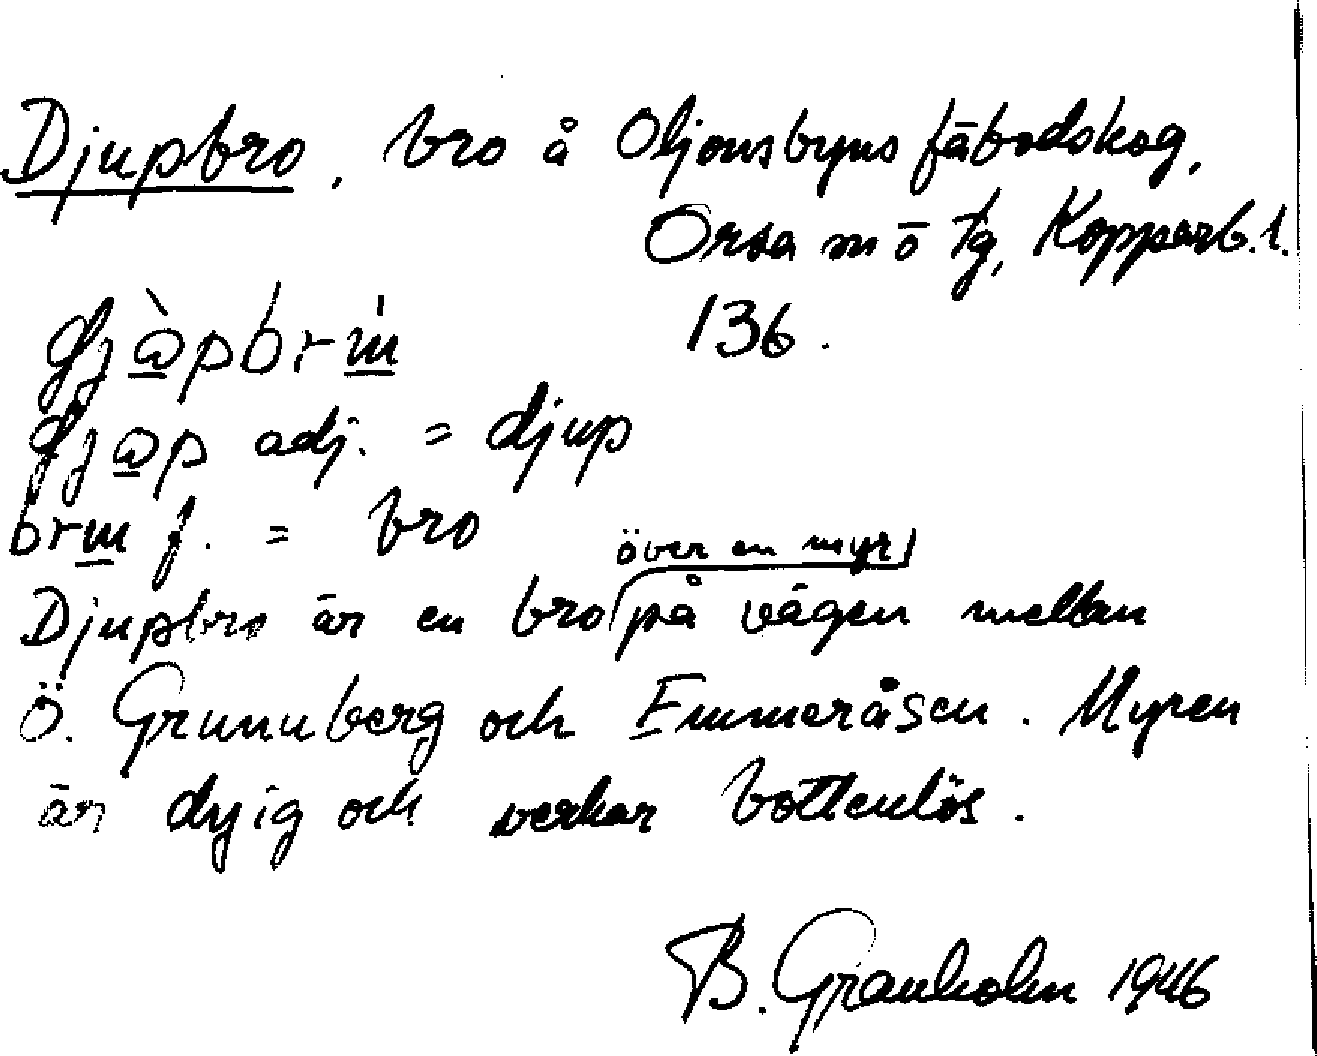 Djupbro, bro å Oljonsbyns fäbodskog,
Orsa sn o tg, Kopparb. l.
136.
adj. = djup
f. = bro
Djupbro är en bro över en myr på vägen mellan
Ö. Grunuberg och Emmeråsen. Myren
är dyig och verkar bottenlös.
B. Granholm 1946